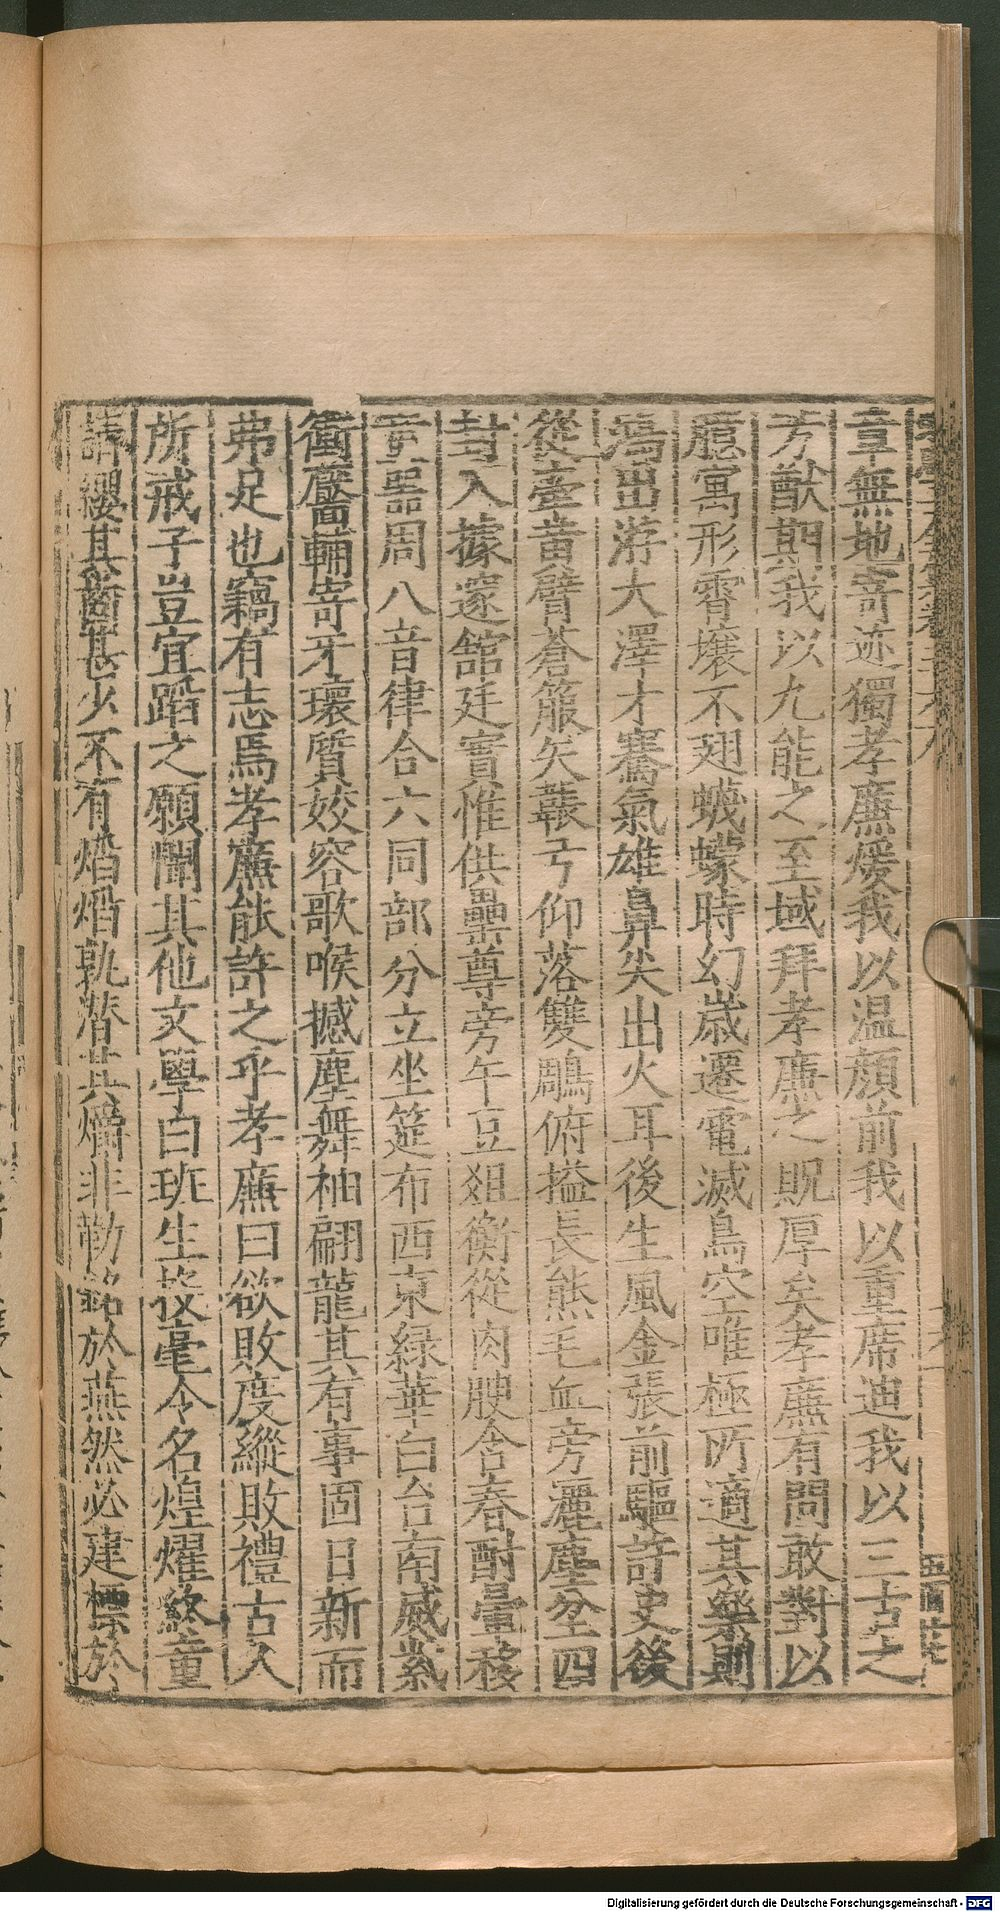 章無地寄迹獨孝廉煖我以温顔前我以重席迪我以三古之
芳猷期我以九能之至域拜孝廉之貺厚矣孝廉有問敢對以
臆寓形霄壤不翅蠛蠓時幻嵗遷電滅鳥空唯極所適其樂則
焉出游大澤才騫氣雄鼻尖出火耳後生風金張前驅許史後
從牽黄臂蒼箙矢韔弓仰落雙鵰俯搤長熊毛血旁灑塵坌四
封入據邃舘廷實惟供罍尊旁午豆俎衡從肉腴含春酎量移
童器周八音律合六同部分立坐筵布西東緑華白台南威紫
衝靨輔寄牙瓌質姣容歌喉撼塵舞袖翩龍其有事固日新而
弗足也竊有志焉孝廉能許之乎孝廉曰欲敗度縱敗禮古人
所戒子豈宜蹈之願聞其他文學曰班生投毫令名煌燿終童
請纓其齒甚少不有熖熖孰潜其爝非勒銘於燕然必建標於
Digitalisierung gefördert durch die Deutsche Forschungsgemeinschaft - DFG